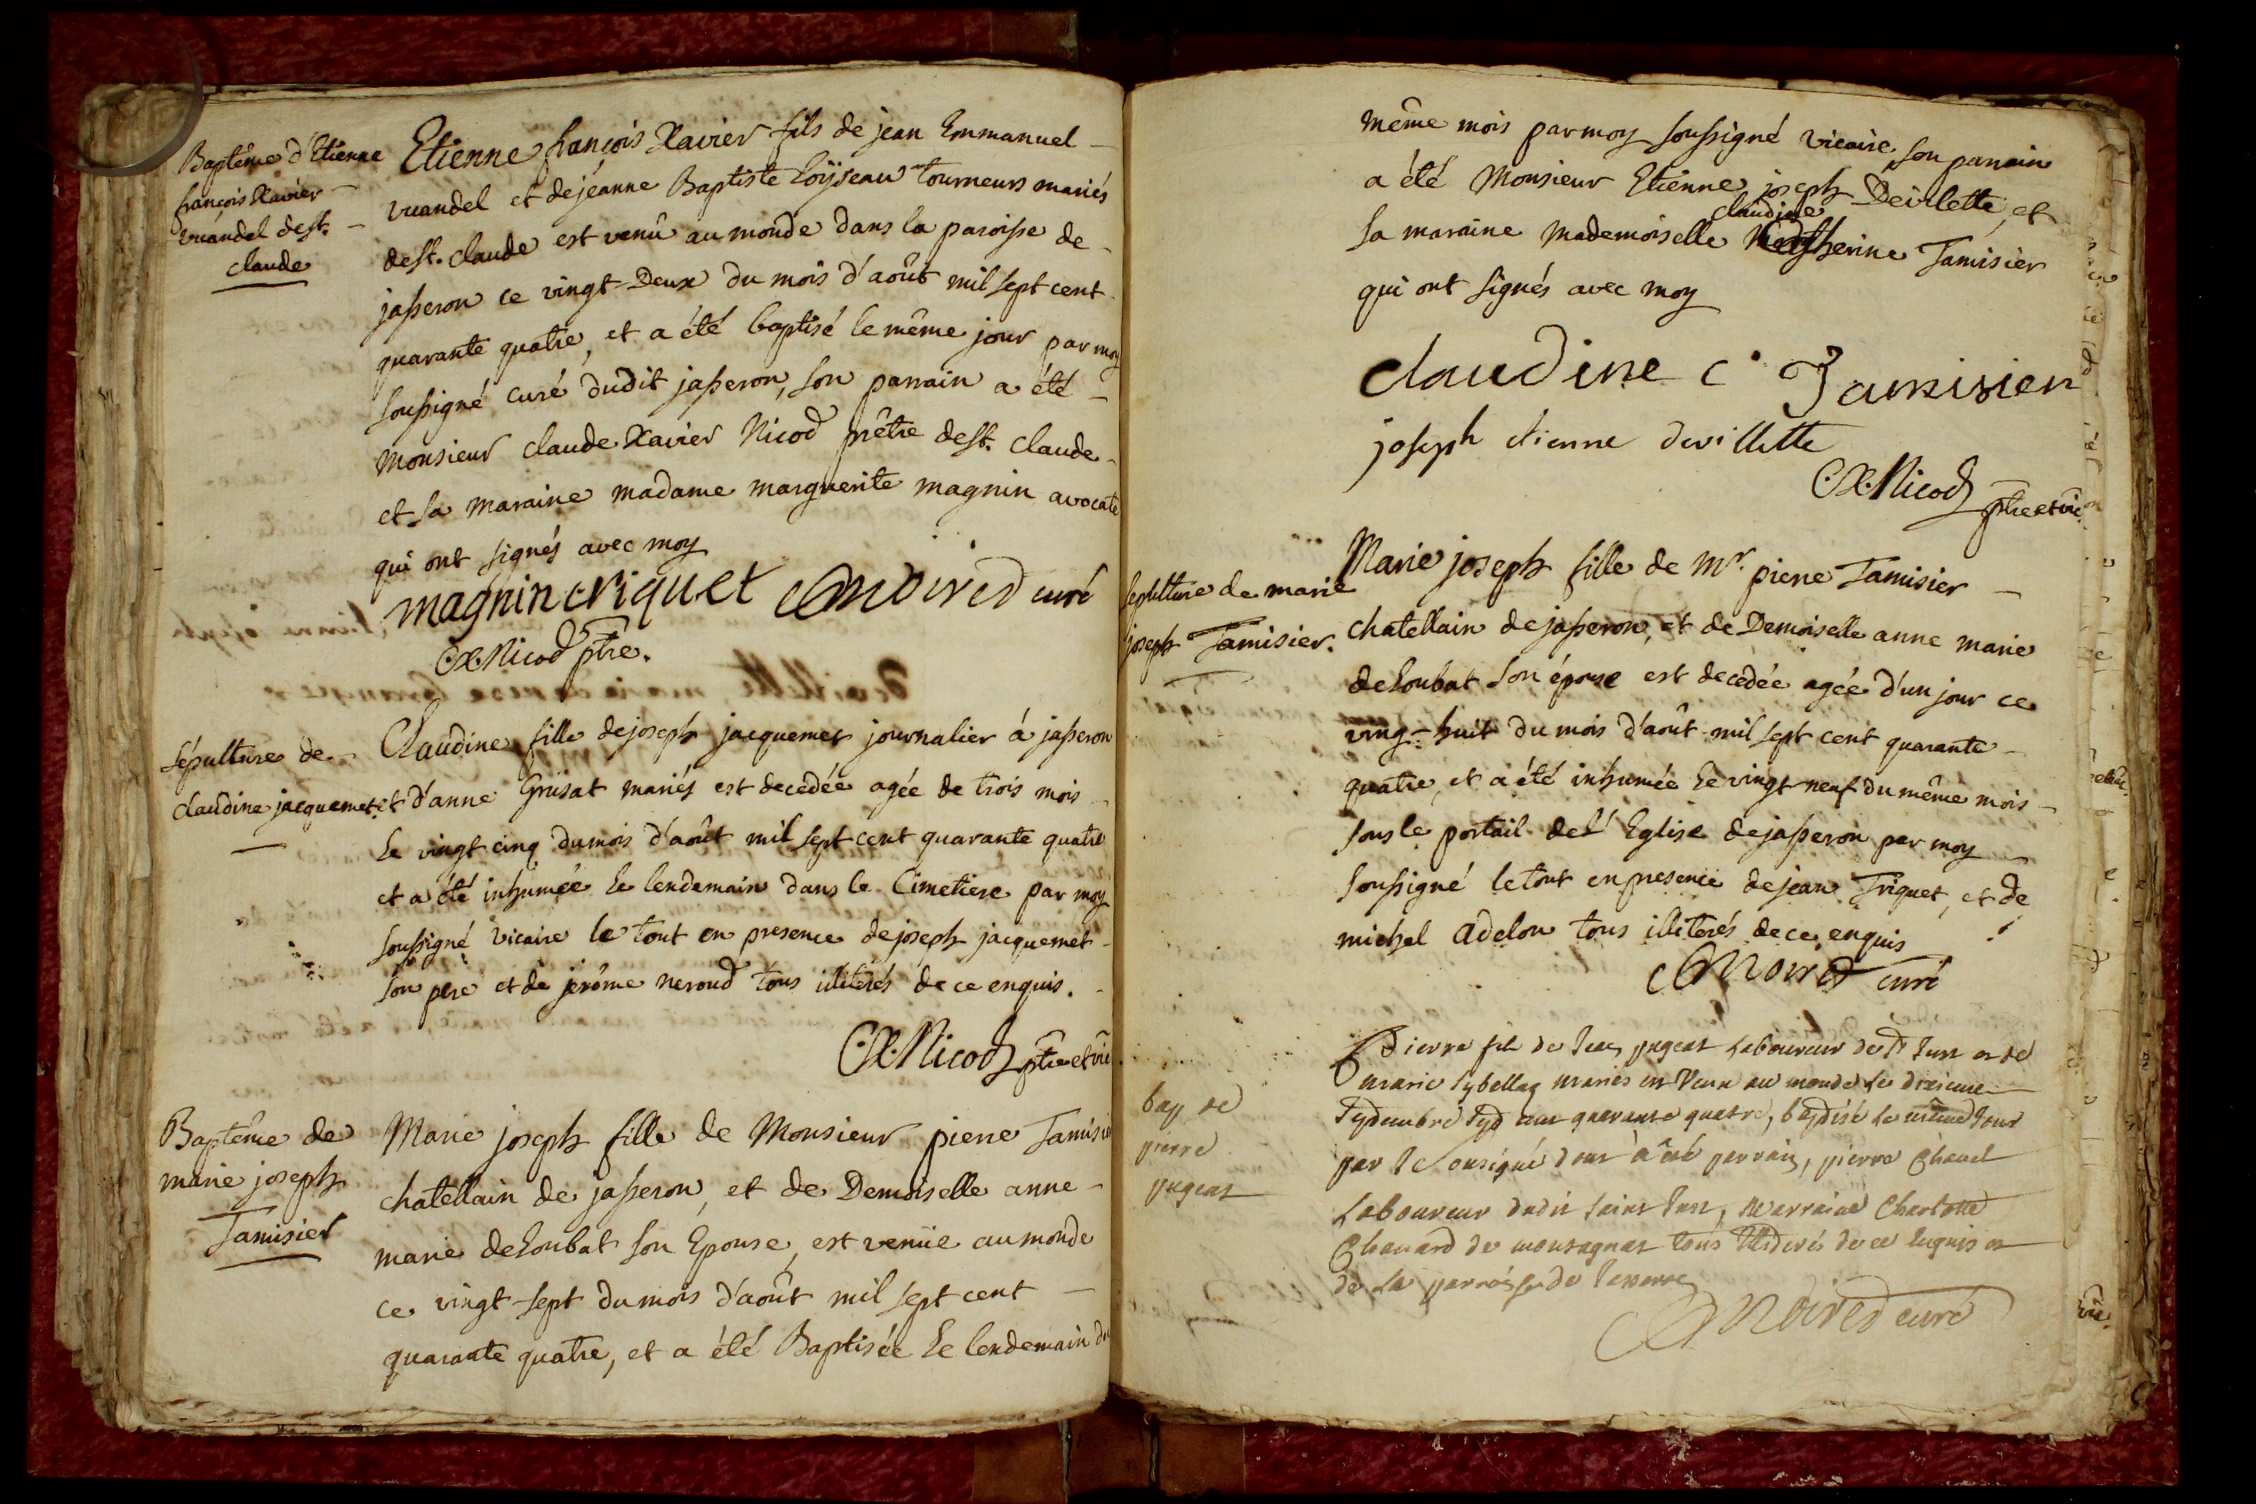 Baptême d'Etienne
françois Xavier
vuandel de st.
claude
Etienne françois Xavier fils de jean Emmanuel
vuandel et de jéanne Baptiste Loÿseau tourneurs mariés
de st. claude est venû au monde dans la paroisse de
jasseron ce vingt-Deux du mois d'août mil sept cent
quarante quatre, et a été baptisé le même jour par moy
soussigné curé dudit jasseron, son parrain a été
Monsieur claude Xavier Nicod prêtre de st. claude
et sa maraine madame marguerite magnin avocate
qui ont signés avec moy
magnin criquet Noired curé
C.X. Nicod ptre.
sépulture de
claudine jacquemet.
Claudine fille de joseph jacquemet journalier à jasseron
et d'anne Grisat mariés est decedée agée de trois mois
Le vingt cinq du mois d'août mil sept cent quarante quatre
et a été inhumée Le lendemain dans le Cimetiere par moy
soussigné vicaire le tout en presence de joseph jacquemet
son pere et de jerôme neroud tous illiterés de ce enquis.
C.X. Nicod ptre et vic
Baptême de
marie joseph
Tamisier
Marie joseph fille de Monsieur pierre Tamisier
chatellain de jasseron, et de Demoiselle anne
marie deLoubat son Epouse, est venüe au monde
ce vingt-sept du mois d'août mil sept cent
quarante quatre, et a été Baptisée Le lendemain du
même mois par moy soussigné vicaire, son parrain
a été Monsieur Etienne joseph Devilette, et
claudine
sa maraine Mademoiselle Catherine Tamisier
qui ont signés avec moy
claudine c. Tamisier
joseph etienne devillette
C.X. Nicod ptre et vic.
sepulture de marie
joseph Tamisier.
Marie joseph fille de Mr. pierre Tamisier
chatellain de jasseron, et de Demoiselle anne marie
deLoubat son épouse est decedée agée d'un jour ce
ving-huit du mois d'août mil sept cent quarante
quatre, et a été inhumée Le vingt neuf du même mois
sous le portail de L'Eglise de jasseron par moy
soussigné le tout en presence de jean Triquet, et de
michel adelon tous illiterés de ce enquis
Noired curé
bap de
pierre
pugeat
Pierre fils de Jean pugeat Laboureur de st Just et de
marie mariés est Venu au monde le
Septembre Sept cent quarante quatre, baptisé le même Jour
par le sousigné dont à été parrain, pierre Chanel
Laboureur dudit saint Just, Marraine Charlotte
Chanard de montagnat tous Illiderés de ce Enquis et
de la parroisse de Jasseron
Noired curé